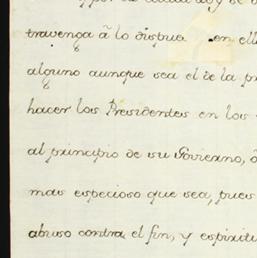 travenga á lo dispue en ell
alguno aunque sea el de la pr
hacer los Presidentes en los
al principio de su Govierno, ó
mas especioso que sea, pues
abuso contra el fin, y espiritu